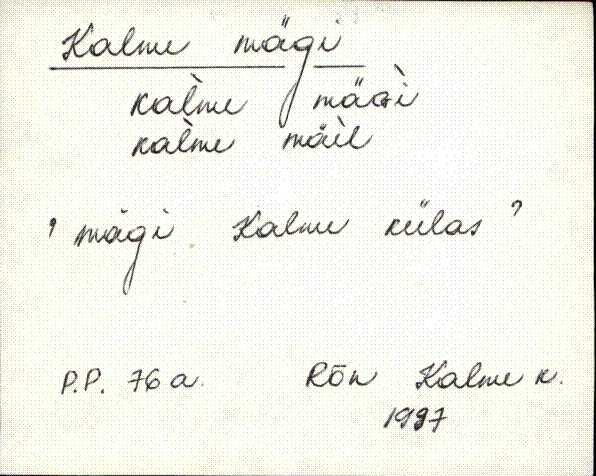 Kalme mägi
kal̀me mäGì
kal̀me mäìl
' mägi Kalme külas '
P.P. 76 a. Rõn Kalme k.
1997